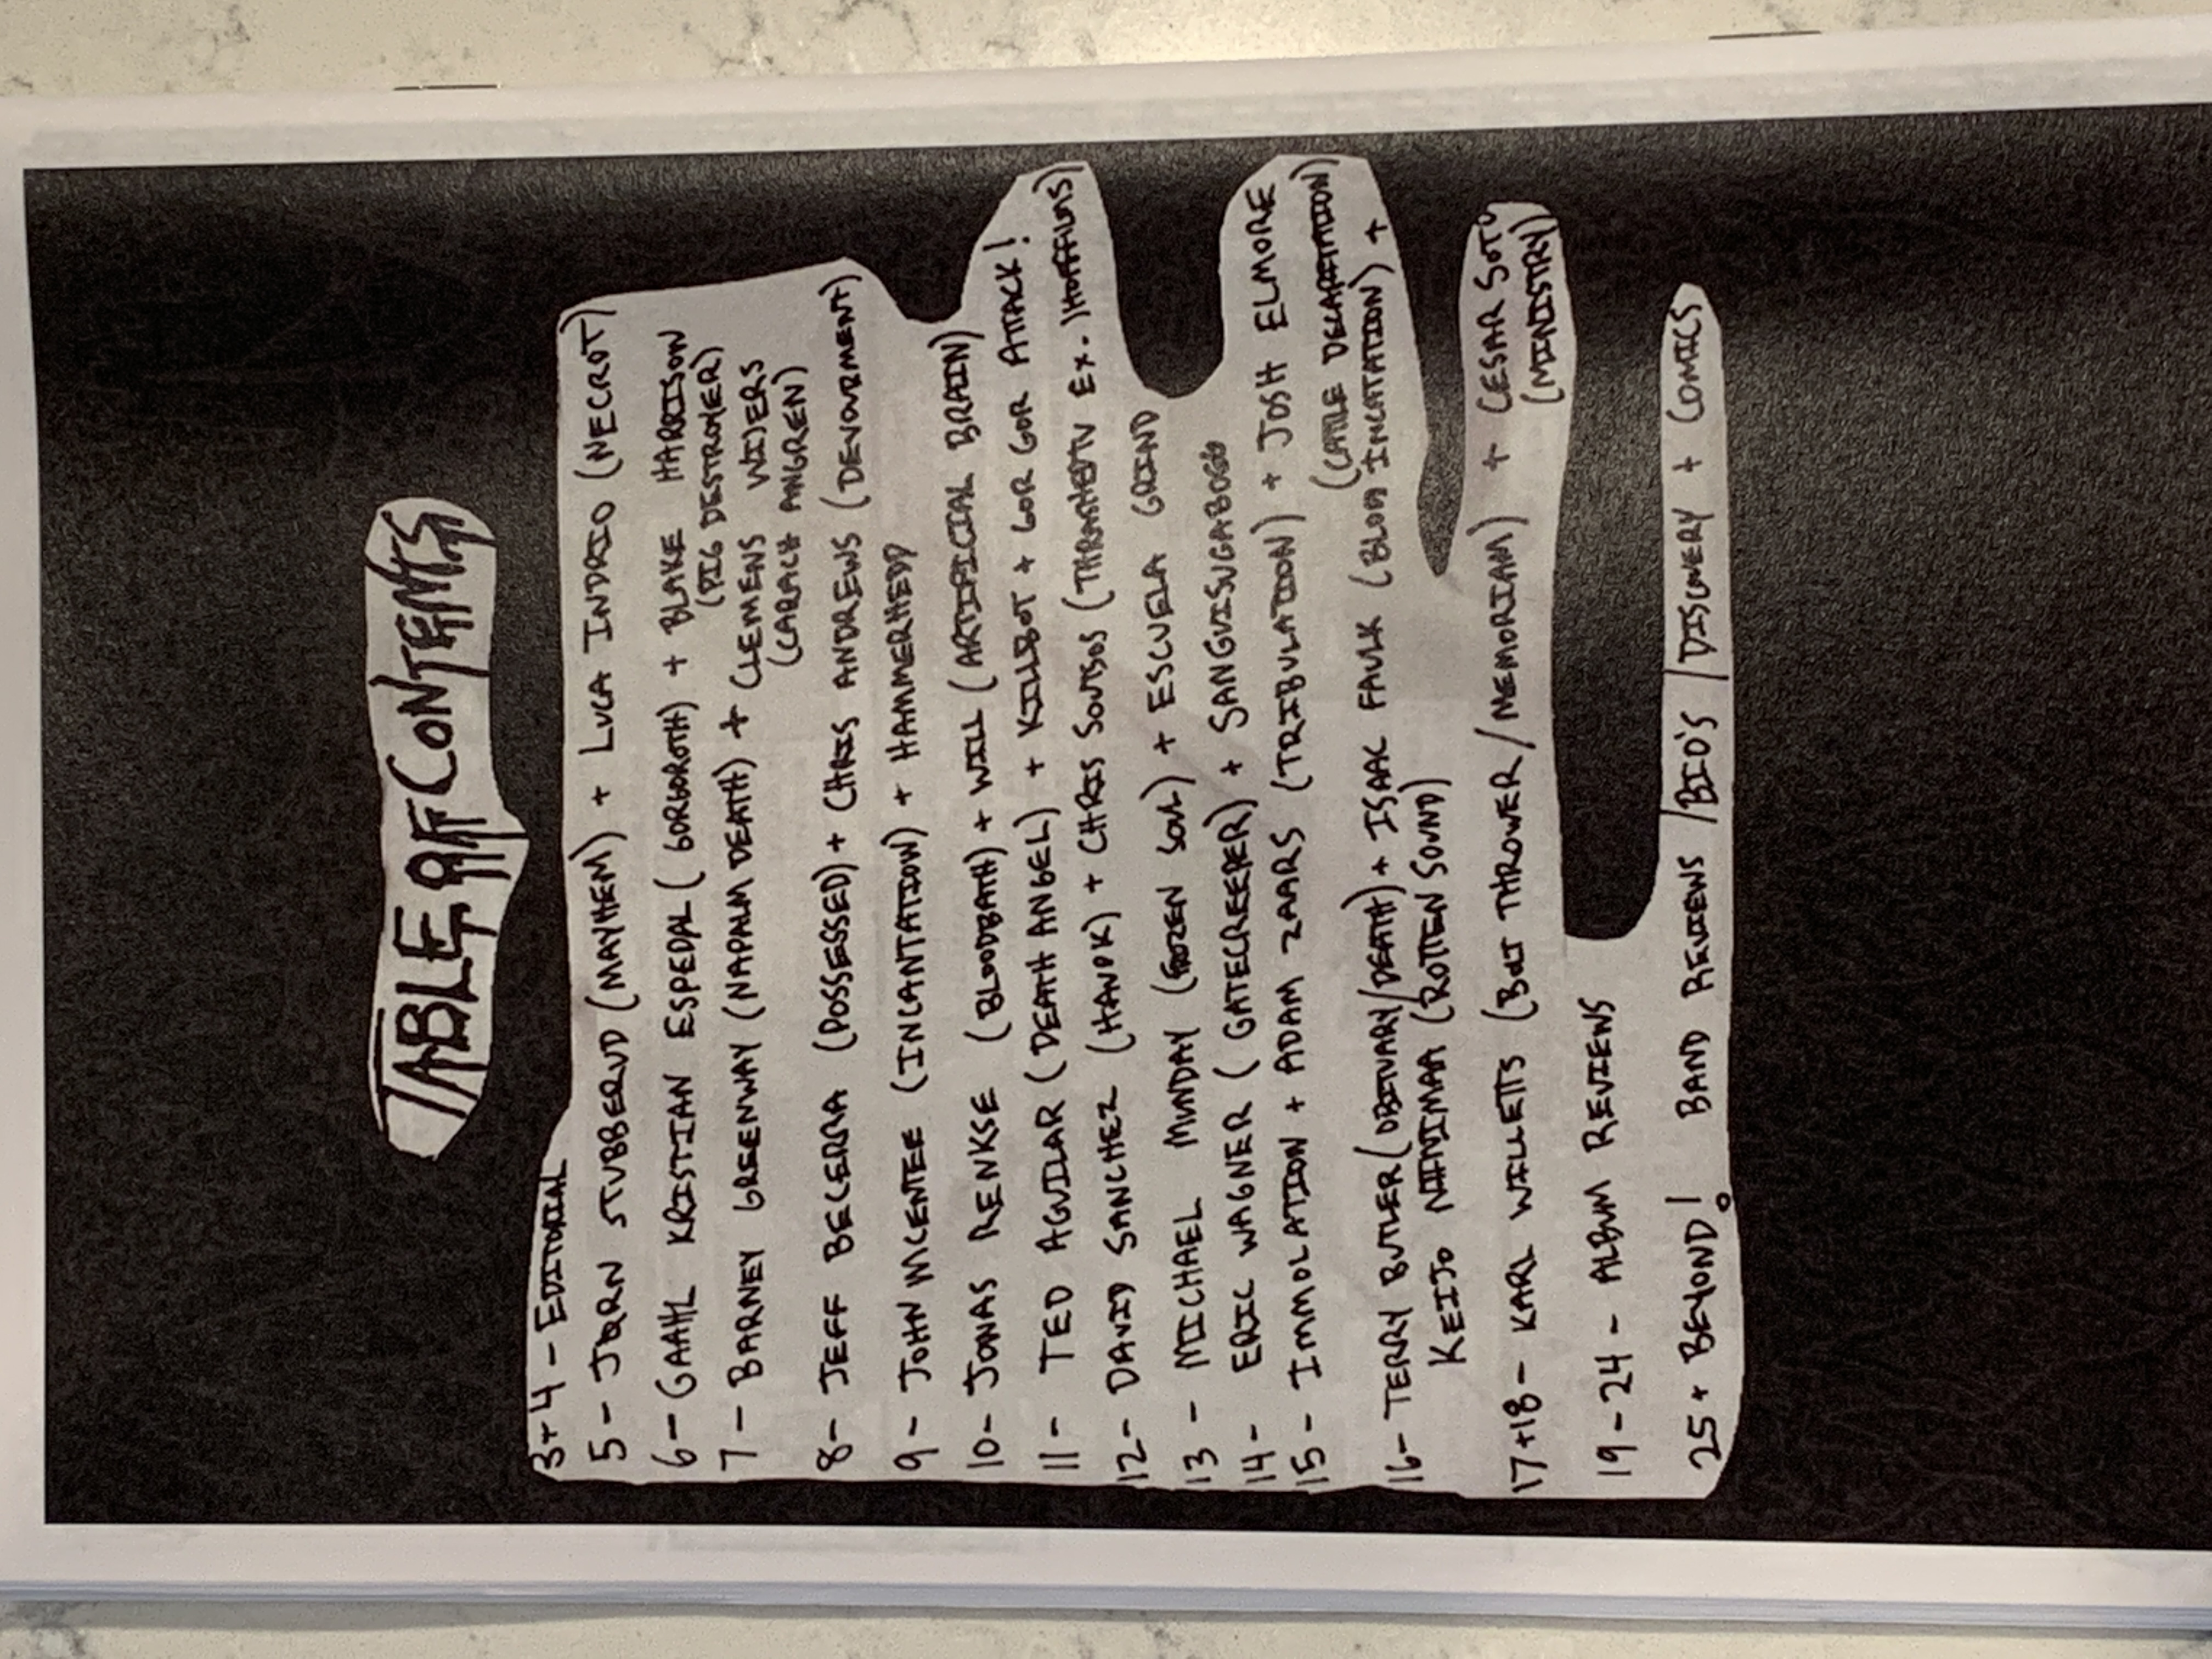 TABLE OFF CONTENTS
3+4 - EDITORIAL
5 - JORN STUBBERUD (MAYHEM) + LUCA INDRIO (NECROT)
6 - GAAHL KRISTIAN ESPEDAL (GORGOROTH) + BLAKE HARRISON
(PIG DESTROYER)
7 - BARNEY GREENWAY (NAPALM DEATH) + CLEMENS WIJERS
(CARACH ANGREN)
8 - JEFF BECERRA (POSSESSED) + CHRIS ANDREWS (DEVOURMENT)
9 - JOHN MCENTEE (INCANTATION) + HAMMERHEDD
10 - JONAS RENKSE (BLOODBATH) + WILL (ARTIFICIAL BRAIN)
11 - TED AGUILAR (DEATH ANGEL) + KILLBOT + GOR GOR ATTACK!
12 - DAVID SANCHEZ (HAVOK) + CHRIS SOUTSOS (THRASHBTV EX.
13 - MICHAEL MUNDAY (FROZEN SOUL) + ESCUELA GRIND
14 - ERIC WAGNER (GATECREEPER) + SANGUISUGABOGG
15 - IMMOLATION + ADAM ZAARS (TRIBULATION) + JOSH ELMORE
(CATTLE DECAPITATION)
16 - TERRY BUTLER (OBITUARY/DEATH) + ISAAC FAULK (BLOOD INCATATION) +
KEIJO NIINIMAA (ROTTEN SOUND)
17+18 - KARL WILLETTS (BOLT THROWER/MEMORIAM) + CESAR SOTO
(MINISTRY)
19-24 - ALBUM REVIEWS
25 + BEYOND! BAND REVIEWS/BIO'S/DISCOVERY + COMICS